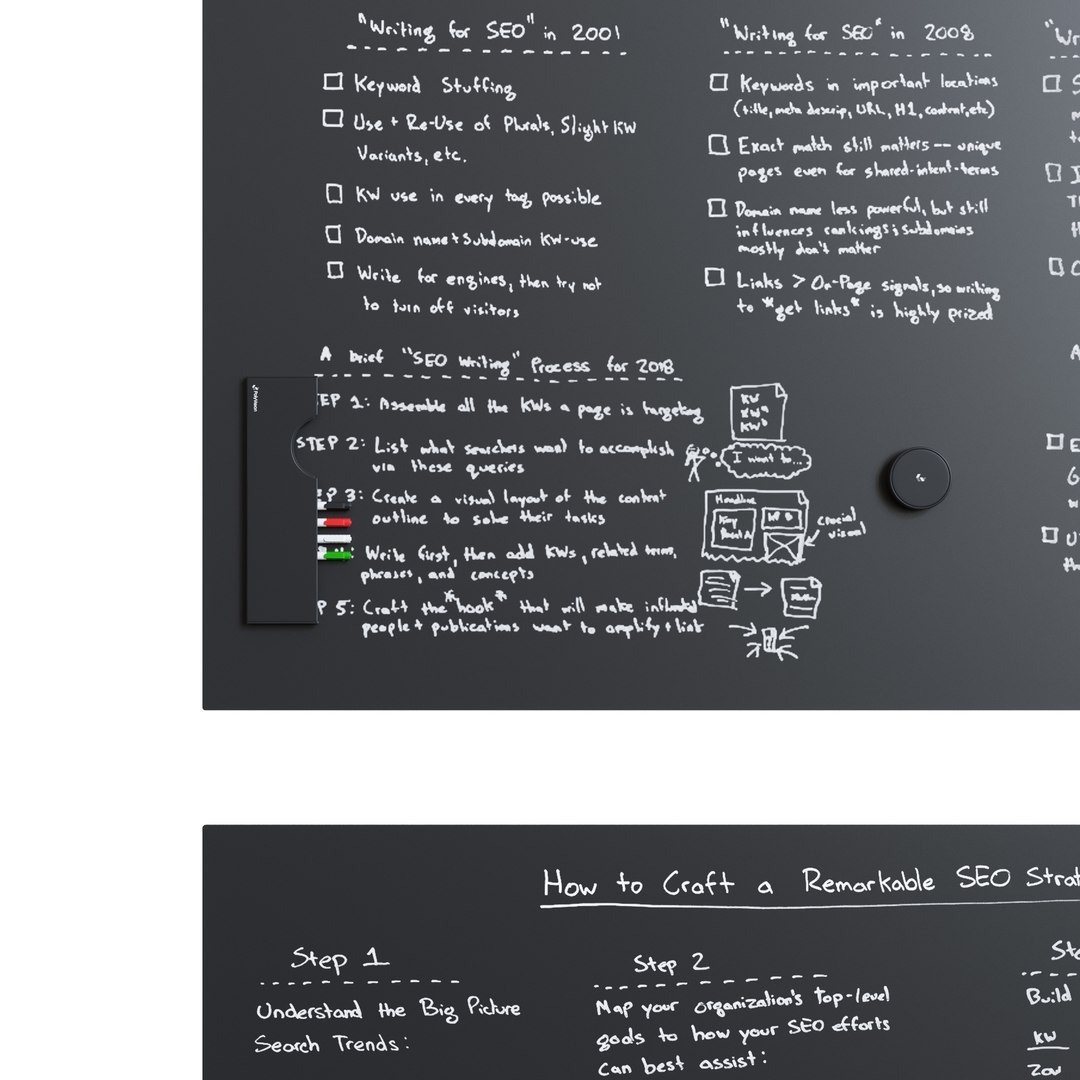 "Writing for SEO" in 2001
☐ Keyword Stuffing
☐ Use + Re-Use of Plurals, Slight KW
Variants, etc.
☐ KW use in every tag possible
☐ Domain name + Subdomain KW-use
☐ Write for engines, then try not
to turn off visitors
"Writing for SEO" in 2008
☐ Keywords in important locations
(title, meta descrip, URL, H1, content, etc)
☐ Exact match still matters -- unique
pages even for shared-intent-terms
☐ Domain name less powerful, but still
influences rankings; subdomains
mostly don't matter
☐ Links > On-Page signals, so writing
to *get links* is highly prized
A brief "SEO Writing" Process for 2018
EP 1: Assemble all the KWs a page is targeting
STEP 2: List what searchers want to accomplish
via these queries
P 3: Create a visual layout of the content
outline to solve their tasks
Write first, then add KWs, related terms,
phrases, and concepts
P 5: Craft the *hook* that will make influential
people + publications want to amplify + link
KW
KWª
KWᵇ
I want to...
Headline
crucial
visual
How to Craft a Remarkable SEO Strat
Step 1
Understand the Big Picture
Search Trends:
Step 2
Map your organization's top-level
goals to how your SEO efforts
can best assist:
Ste
Build
KW